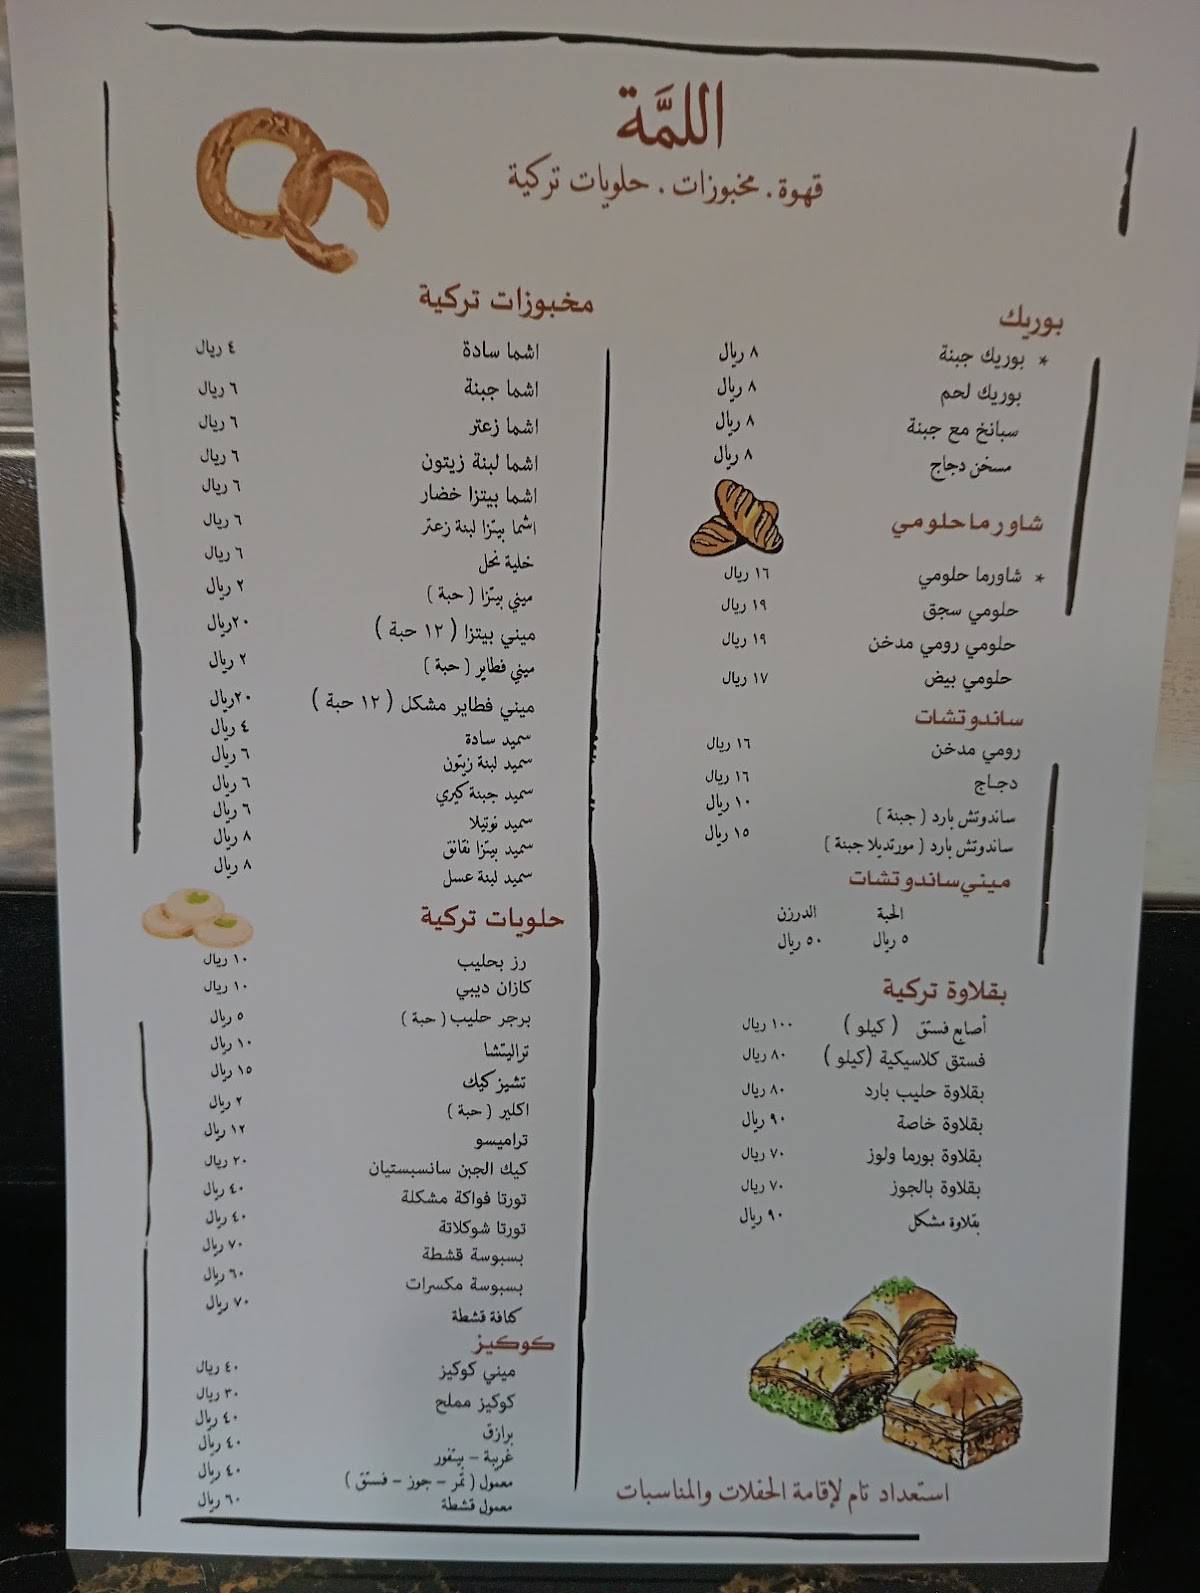 اللمَّة
قهوة . مخبوزات . حلويات تركية
بوريك
* بوريك جبنة ٨ ريال
بوريك لحم ٨ ريال
سبانخ مع جبنة ٨ ريال
مسخن دجاج ٨ ريال
شاورما حلومي
* شاورما حلومي ١٦ ريال
حلومي سجق ١٩ ريال
حلومي رومي مدخن ١٩ ريال
حلومي بيض ١٧ ريال
ساندوتشات
رومي مدخن ١٦ ريال
دجاج ١٦ ريال
ساندوتش بارد ( جبنة ) ١٠ ريال
ساندوتش بارد ( مورتديلا جبنة ) ١٥ ريال
ميني ساندوتشات
الحبة الدرزن
٥ ريال ٥٠ ريال
بقلاوة تركية
أصابع فستق ( كيلو ) ١٠٠ ريال
فستق كلاسيكية (كيلو ) ٨٠ ريال
بقلاوة حليب بارد ٨٠ ريال
بقلاوة خاصة ٩٠ ريال
بقلاوة بورما ولوز ٧٠ ريال
بقلاوة بالجوز ٧٠ ريال
بقلاوة مشكل ٩٠ ريال
مخبوزات تركية
اشما سادة ٤ ريال
اشما جبنة ٦ ريال
اشما زعتر ٦ ريال
اشما لبنة زيتون ٦ ريال
اشما بيتزا خضار ٦ ريال
اشما بيتزا لبنة زعتر ٦ ريال
خلية نحل ٦ ريال
ميني بيتزا ( حبة ) ٢ ريال
ميني بيتزا ( ١٢ حبة ) ٢٠ريال
ميني فطاير ( حبة ) ٢ ريال
ميني فطاير مشكل ( ١٢ حبة ) ٢٠ريال
سميد سادة ٤ ريال
سميد لبنة زيتون ٦ ريال
سميد جبنة كيري ٦ ريال
سميد نوتيلا ٦ ريال
سميد بيتزا نقانق ٨ ريال
سميد لبنة عسل ٨ ريال
حلويات تركية
رز بحليب ١٠ ريال
كازان ديبي ١٠ ريال
برجر حليب ( حبة ) ٥ ريال
تراليتشا ١٠ ريال
تشيز كيك ١٥ ريال
اكلير ( حبة ) ٢ ريال
تراميسو ١٢ ريال
كيك الجبن سانسبستيان ٢٠ ريال
تورتا فواكة مشكلة ٤٠ ريال
تورتا شوكلاتة ٤٠ ريال
بسبوسة قشطة ٧٠ ريال
بسبوسة مكسرات ٦٠ ريال
كنافة قشطة ٧٠ ريال
كوكيز
ميني كوكيز ٤٠ ريال
كوكيز مملح ٣٠ ريال
برازق ٤٠ ريال
غريبة – بيتفور ٤٠ ريال
معمول ( تمر – جوز – فستق ) ٤٠ ريال
معمول قشطة ٦٠ ريال
استعداد تام لإقامة الحفلات والمناسبات